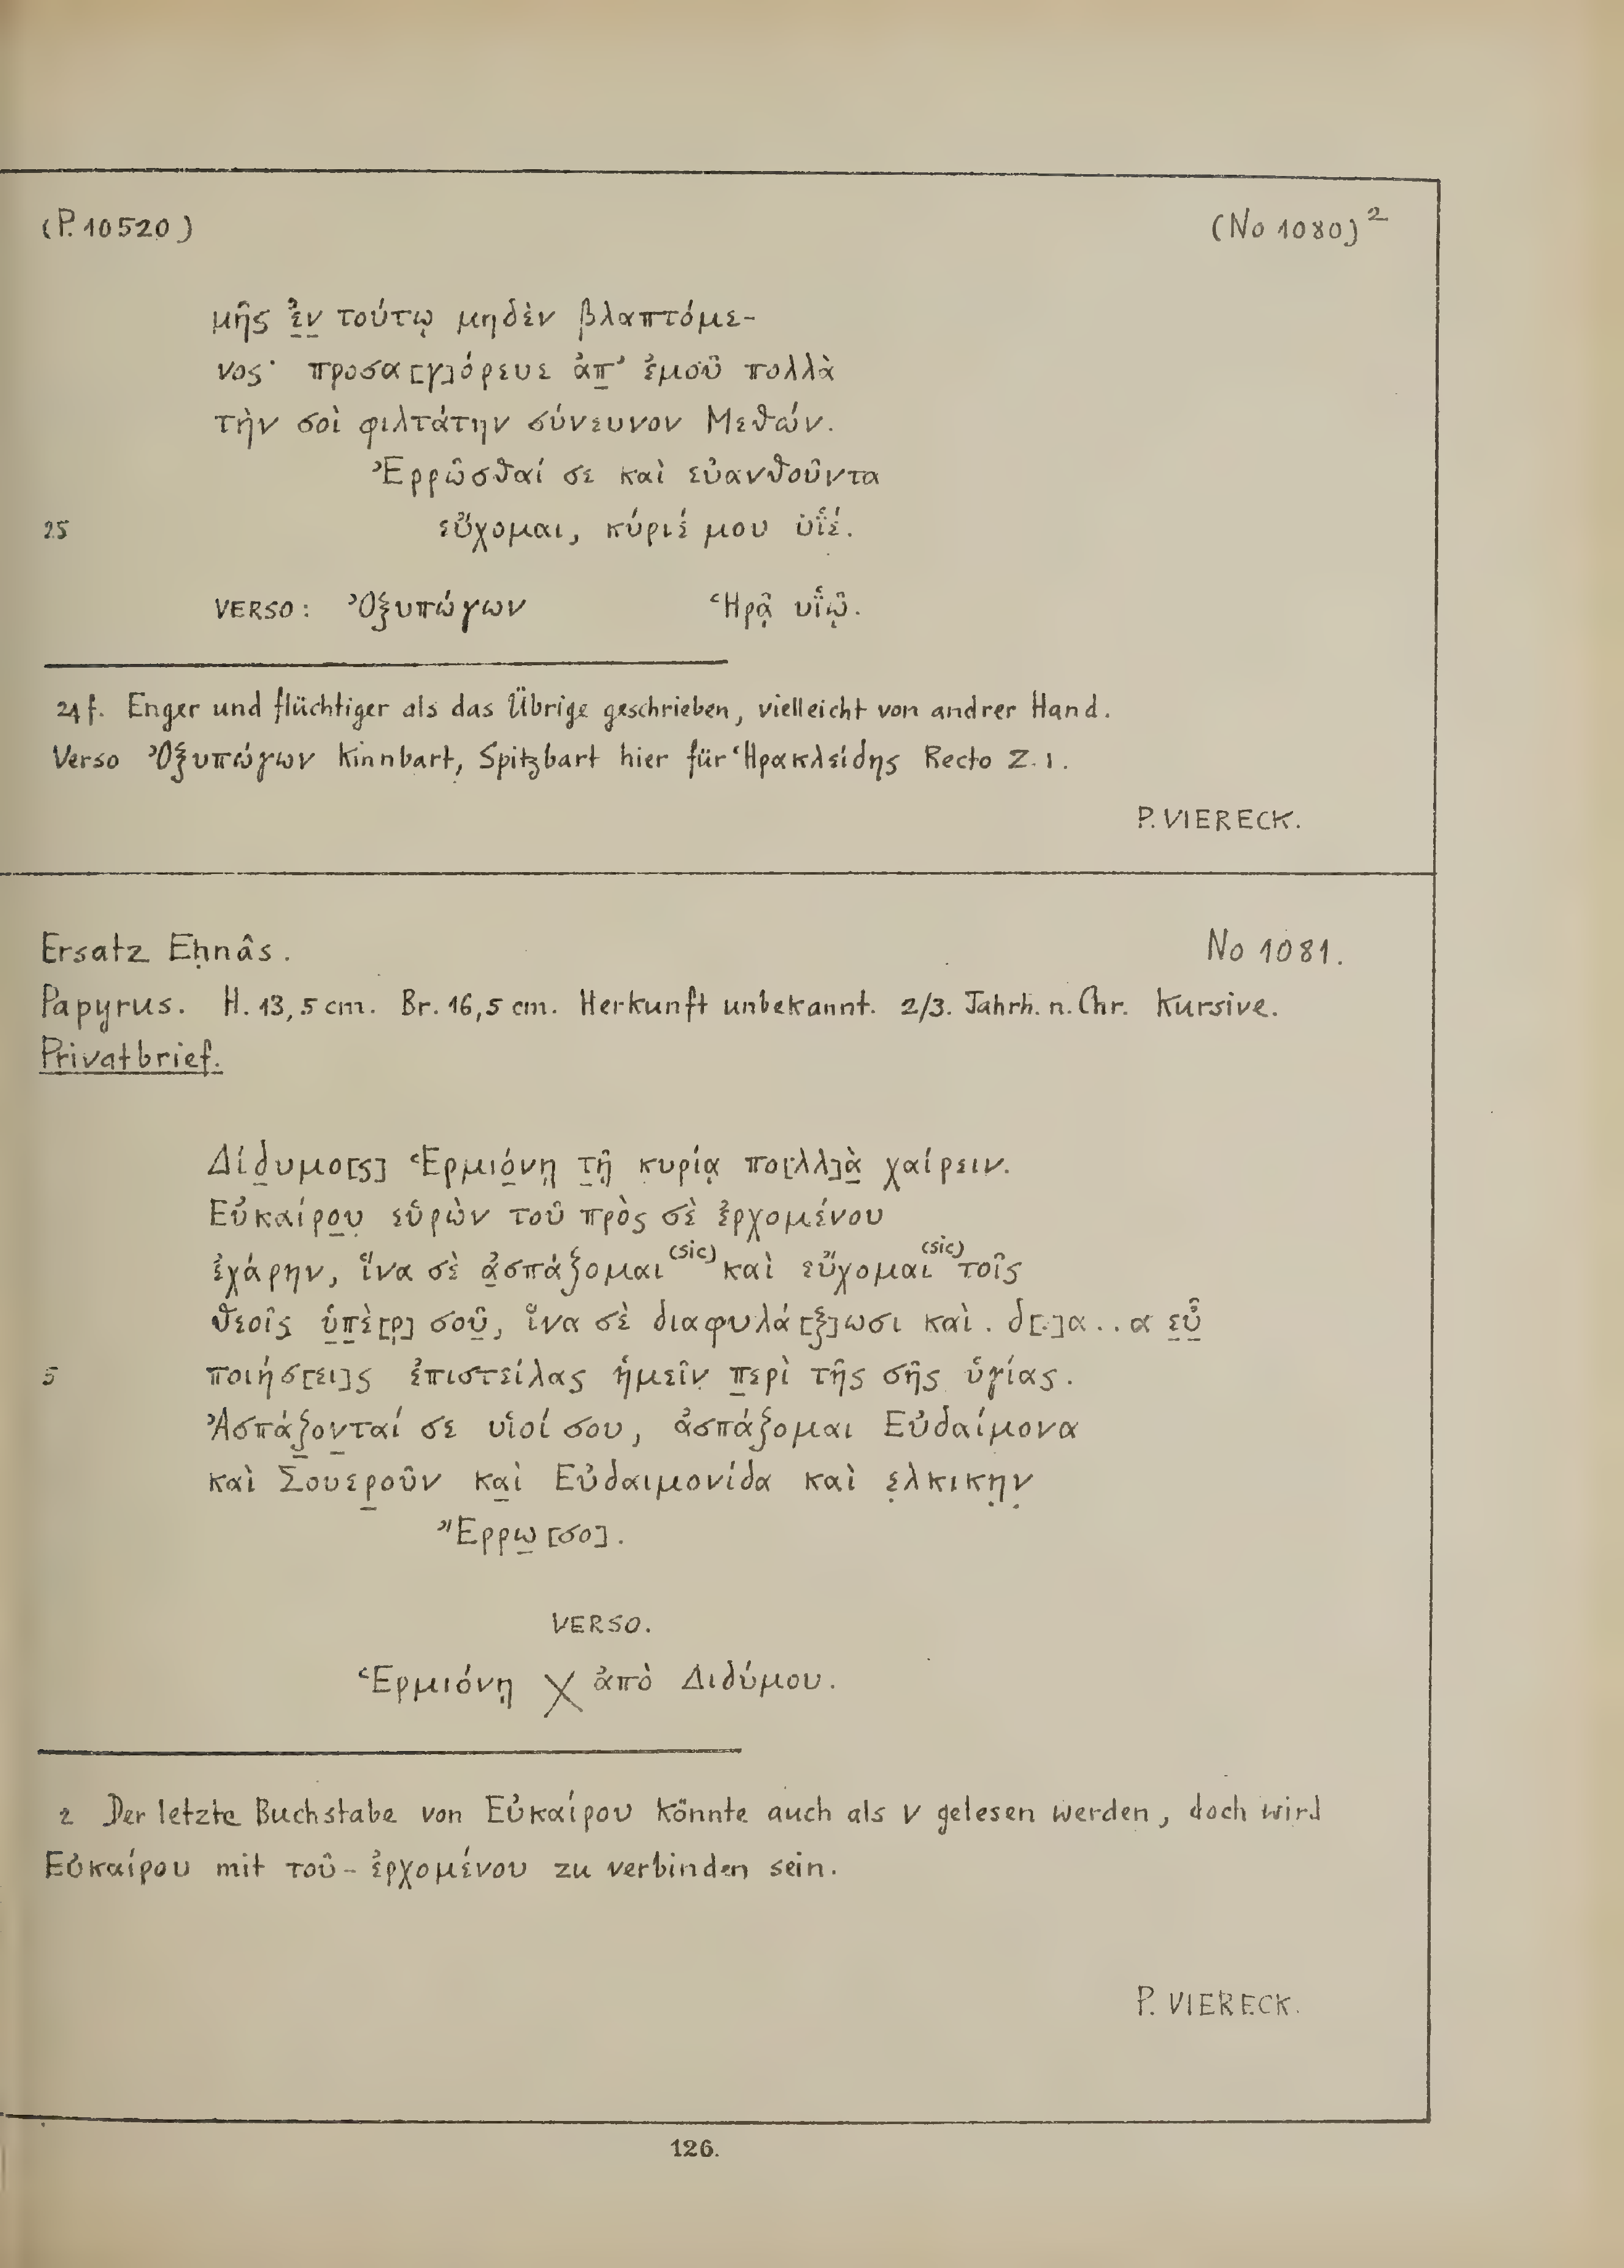 (P. 10520) (No 1080)²
μῆς ἐ̲ν̲ τούτῳ μηδὲν βλαπτόμε-
νος· προσα[γ]όρευε ἀπ̲’ ἐμοῦ πολλὰ
τὴν σοὶ φιλτάτην σύνευνον Μεθών.
Ἐρρῶσθαί σε καὶ εὐανθοῦντα
25 εὔχομαι, κύριέ μου ὑϊέ.
VERSO: Ὀξυπώγων Ἡρᾷ υἱῷ.
24 f. Enger und flüchtiger als das Übrige geschrieben, vielleicht von andrer Hand.
Verso Ὀξυπώγων Kinnbart, Spitzbart hier für Ἡρακλείδης Recto Z. 1.
P. VIERECK.
Ersatz Eḥnâs. No 1081.
Papyrus. H. 13,5 cm. Br. 16,5 cm. Herkunft unbekannt. 2/3. Jahrh. n. Chr. Kursive.
Privatbrief.
Δίδ̲υμο[ς] Ἑρμιό̲νῃ τ̲ῇ κυρίᾳ πο[λλ]ὰ̲ χαίρειν.
Εὐκαίρο̲υ̣ εὑρὼν τοῦ πρὸς σὲ ἐρχομένου
ἐχάρην, ἵνα σὲ ἀ̲σπάζομαι (sic) καὶ εὔχομαι (sic) τοῖς
θεοῖς ὑ̲π̲ὲ[ρ] σοῦ̲, ἵνα σὲ διαφυλά[ξ]ωσι καὶ . δ[.]α..α ε̲ὖ̲
5 ποιήσ[ει]ς ἐπιστείλας ἡμεῖν̣ π̲ερὶ τῆς σῆς ὑγίας.
Ἀσπάζ̲ον̲ταί σε υἱοί σου, ἀσπάζομαι Εὐδαίμονα
καὶ Σουερ̲οῦν κα̲ὶ Εὐδαιμονίδα καὶ ε̣λκικη̣ν̣
Ἔρρω̲[σο].
VERSO.
Ἑρμιόνῃ X ἀπὸ Διδύμου.
2 Der letzte Buchstabe von Εὐκαίρου könnte auch als ν gelesen werden, doch wird
Εὐκαίρου mit τοῦ - ἐρχομένου zu verbinden sein.
P. VIERECK.
126.